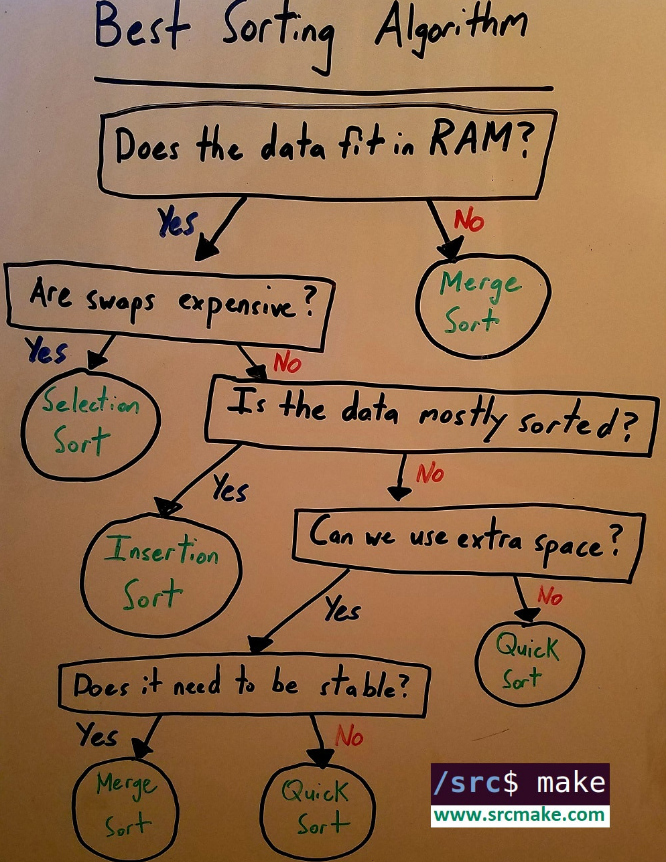 Best Sorting Algorithm
Does the data fit in RAM?
Yes
No
Are swaps expensive?
Merge
Sort
Yes
No
Selection
Sort
Is the data mostly sorted?
Yes
No
Insertion
Sort
Can we use extra space?
Yes
No
Quick
Sort
Does it need to be stable?
Yes
No
Merge
Sort
Quick
Sort
/src$ make
www.srcmake.com